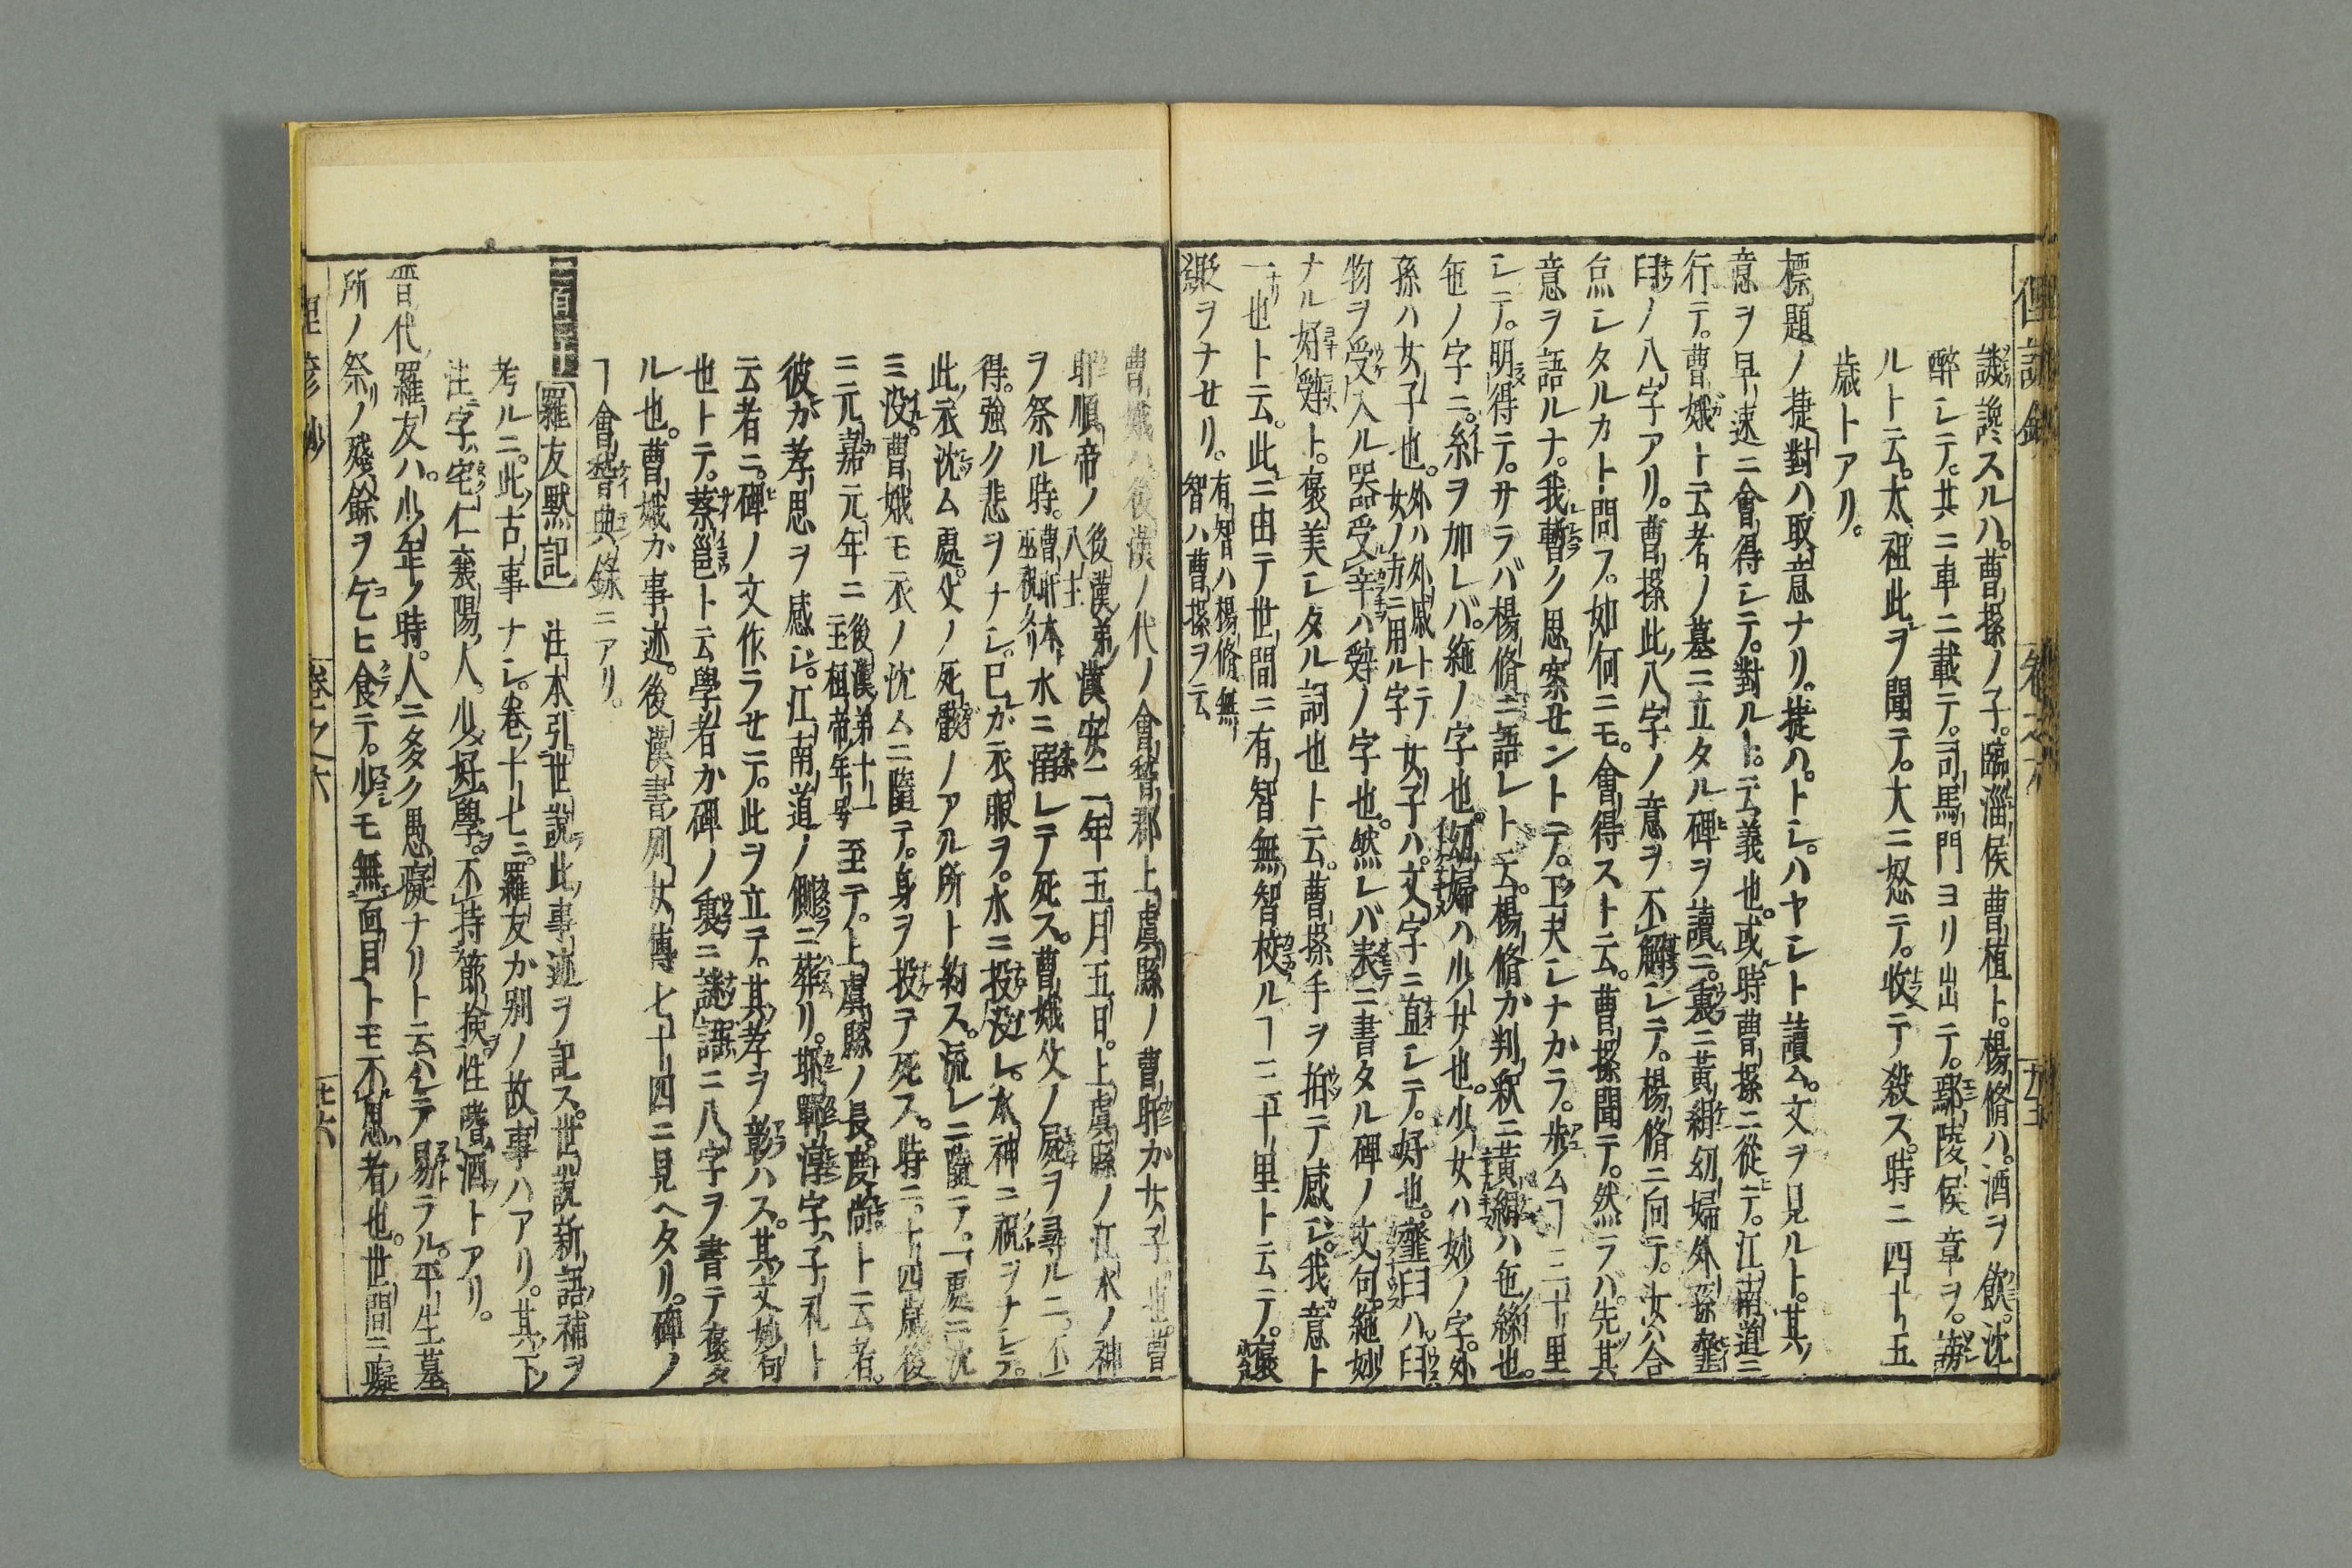 譏讒スルハ。曹操ノ子。臨淄侯曹植ト。楊脩ハ。酒ヲ飲。沈
醉シテ。其ニ車ニ載テ。司馬門ヨリ出テ。鄢陵侯章ヲ。謗
ルト云。太祖此ヲ聞テ。大ニ怒テ。收テ殺ス。時ニ四十五
歳トアリ。
標題ノ捷對ハ取意ナリ。捷ハ。トシ。ハヤシト讀ム。文ヲ見ルト。其ノ
意ヲ早速ニ會得シテ。對ルト。云義也。或時曹操ニ從テ。江南道ニ
行テ。曹娥ト云者ノ墓ニ立タル碑ヲ讀ニ。裏ニ黃絹幼婦外孫韲
臼ノ八字アリ。曹操此八字ノ意ヲ不解シテ。楊脩ニ向テ。汝ハ合
点シタルカト問フ。如何ニモ。會得スト云。曹操聞テ。然ラバ先其
意ヲ語ルナ。我暫ク思案セントテ。工夫シナカラ。歩ムヿ三十里
シテ。明得テ。サラバ楊脩ニ語レト云。楊脩カ判釈ニ黃絹ハ色絲也。
色ノ字ニ。糸ヲ加レバ。絶ノ字也。幼婦ハ少女也。少女ハ妙ノ字。外
孫ハ女子也。外ハ外戚トテ女ノ方ニ用ル字女子ハ。文字ニ直シテ。好也。韲臼ハ。臼
物ヲ受入ル器。受辛ハ辤ノ字也。然レバ表ニ書タル碑ノ文句。絶妙
ナル好辤ト。褒美シタル詞也ト云。曹操手ヲ拍テ感シ。我意ト
一也ト云。此ニ由テ世間ニ有智無智校ルヿ三十里ト云テ。褒
貶ヲナセリ。有智ハ楊脩無智ハ曹操ヲ云
曹娥ハ後漢ノ代ノ會稽郡上虞縣ノ曹盱カ女子也。曹
盱順帝ノ後漢弟八主漢安二年五月五日。上虞縣ノ江水ノ神
ヲ祭ル時。曹盱本ヨリ巫祝水ニ溺レテ死ス。曹娥父ノ屍ヲ尋ルニ。不
得。強ク悲ヲナシ。已カ衣服ヲ。水ニ投沒レ。水神ニ祝ヲナシテ。
此衣沈ム處。父ノ死骸ノアル所ト約ス。流レニ隨テ。一處ニ沈
ミ没。曹娥モ衣ノ沈ムニ隨テ。身ヲ投テ死ス。時ニ。十四歳後
ニ元嘉元年ニ後漢弟十一主桓帝ノ年号至テ。上虞縣ノ長。度尚ト云者。
彼カ孝思ヲ感シ。江南道ノ側ニ葬リ。邯鄲淳字ハ子礼ト
云者ニ。碑ノ文作ラセテ。此ヲ立テ。其孝ヲ彰ハス。其文妙句
也トテ。蔡邕ト云學者カ碑ノ裏ニ謎語ニ八字ヲ書テ褒タ
ル也。曹娥カ事迹。後漢書列女傳七十四ニ見ヘタリ。碑ノ
ヿ會稽典錄ニアリ。
二百二十 羅友默記 注本引世説此事迹ヲ記ス。世説新語補ヲ
考ルニ。此古事ナシ。卷十七ニ。羅友カ別ノ故事ハアリ。其下ノ
注字宅仁襄陽人。少好學。不持節撿。性嗜酒トアリ。
晉代羅友ハ。少年ノ時。人ニ多ク愚癡ナリト云ハレテ易ラル。平生墓
所ノ祭ノ殘餘ヲ乞ヒ食テ。少モ無面目トモ不思者也。世間ニ癡
卷之六